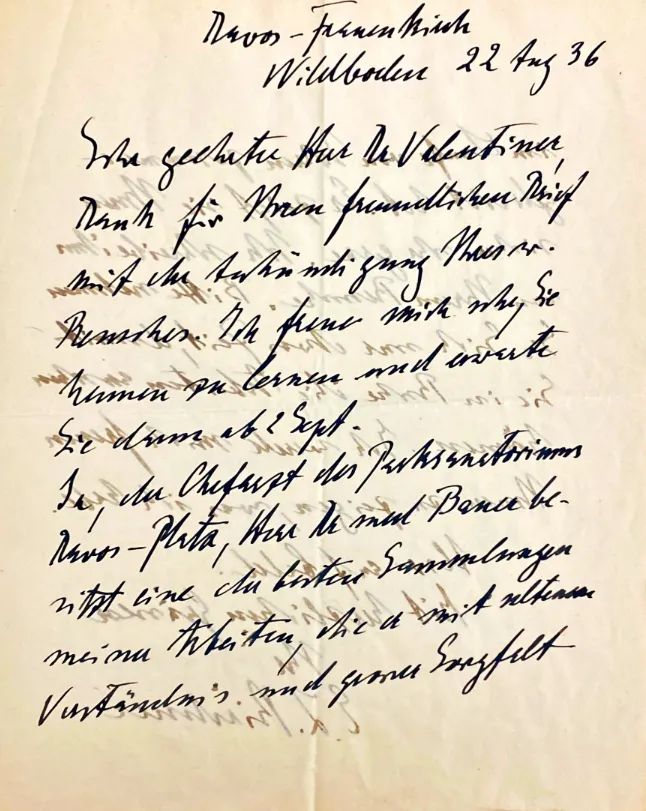 Davos-Frauenkirch
Wildboden 22 Aug 36
Sehr geehrter Herr Dr Valentiner,
Dank für Ihren freundlichen Brief
mit der Ankündigung Ihres w.
Besuches. Ich freue mich sehr, Sie
kennen zu lernen und erwarte
Sie dann ab 2 Sept.
Ja, der Chefarzt des Parksanatoriums
Davos-Platz, Herr Dr med Bauer be-
sitzt eine der besten Sammlungen
meiner Arbeiten, die er mit seltenem
Verständnis und grosser Sorgfalt